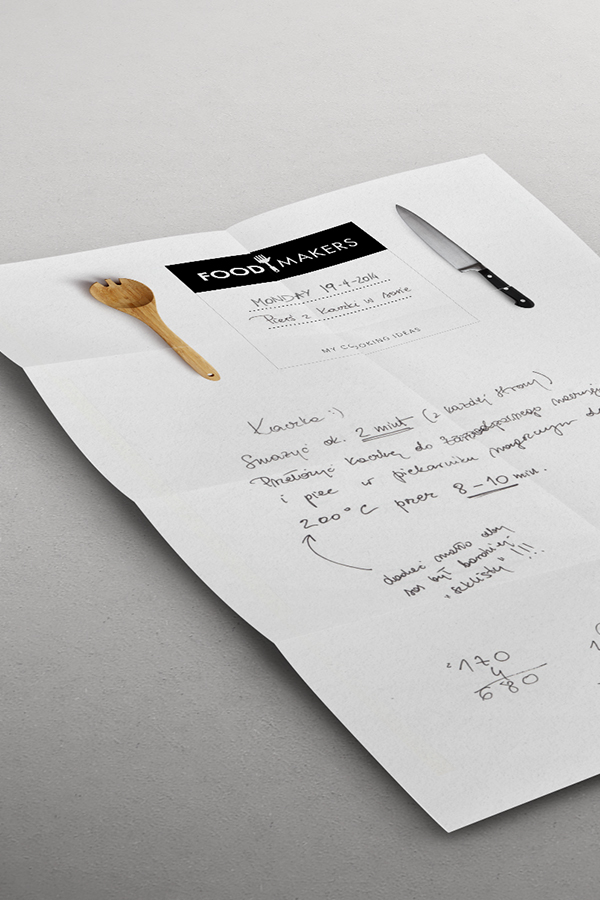 FOOD MAKERS
MONDAY 19-4-2014
Pierś z Kaczki w sosie
MY COOKING IDEAS
Kaczka :)
Smażyć ok. 2 minut (z każdej strony)
Przełożyć kaczkę do
i piec w piekarniku nagrzanym do
200°C przez 8-10 min.
dodać masło aby
sos był bardziej
"szklisty" !!!
170
4
680